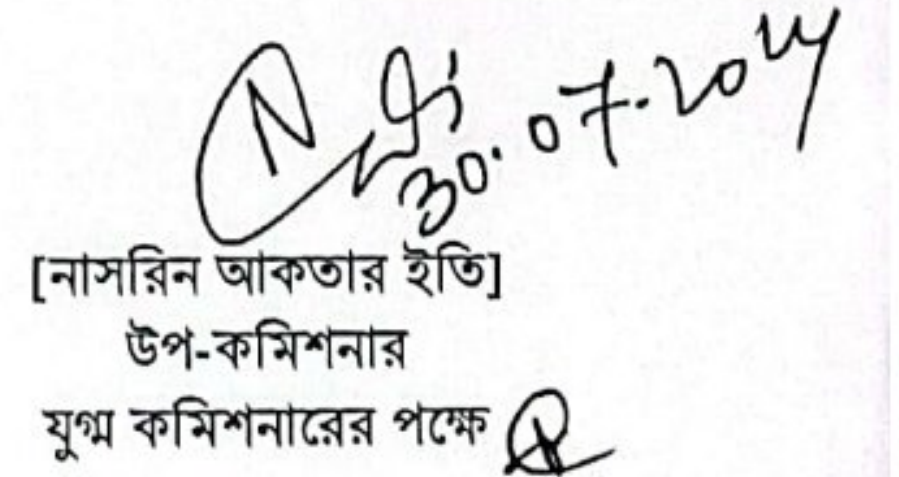 30.07.2024
[নাসরিন আকতার ইতি]
উপ-কমিশনার
যুগ্ম কমিশনারের পক্ষে